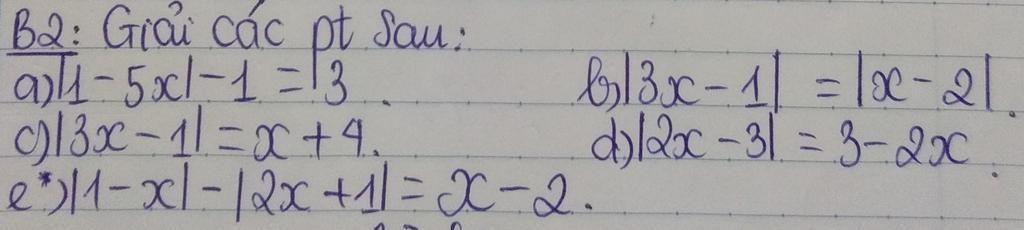 B2: Giải các pt sau:
a) |1 - 5x| - 1 = 3.
b) |3x - 1| = |x - 2|.
c) |3x - 1| = x + 4.
d) |2x - 3| = 3 - 2x.
e*) |1 - x| - |2x + 1| = x - 2.